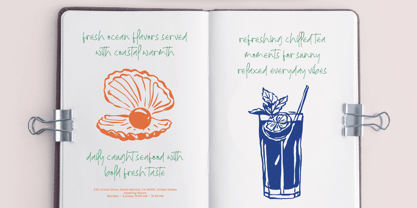 fresh ocean flavors served
with coastal warmth
daily caught seafood with
bold fresh taste
refreshing chilled tea
moments for sunny
relaxed everyday vibes